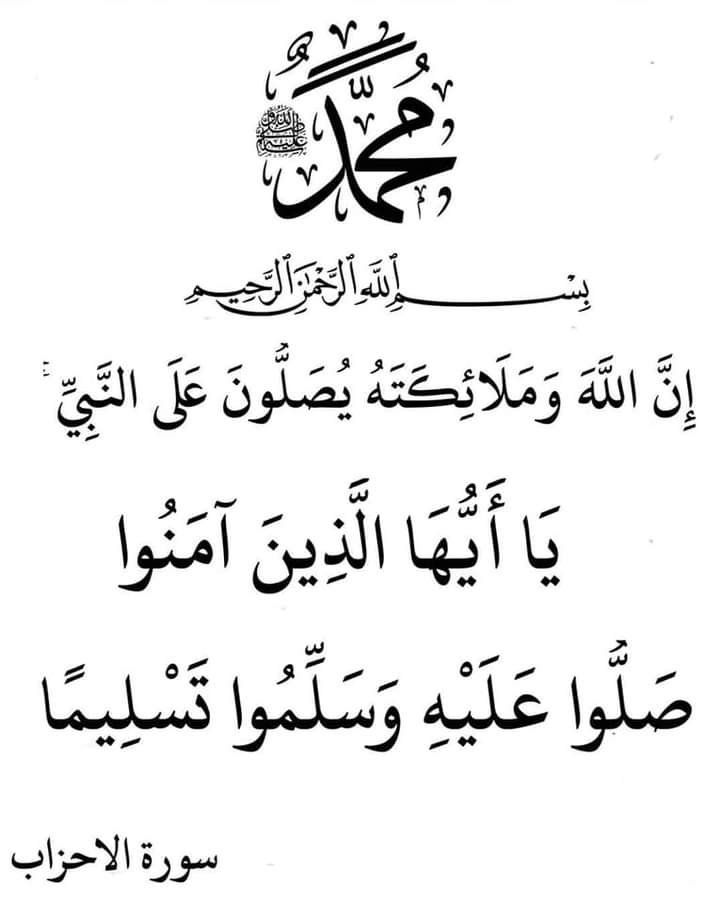 محمد ﷺ
بِسْمِ ٱللَّهِ ٱلرَّحْمَٰنِ ٱلرَّحِيمِ
إِنَّ اللَّهَ وَمَلَائِكَتَهُ يُصَلُّونَ عَلَى النَّبِيِّ ۚ
يَا أَيُّهَا الَّذِينَ آمَنُوا
صَلُّوا عَلَيْهِ وَسَلِّمُوا تَسْلِيمًا
سورة الاحزاب